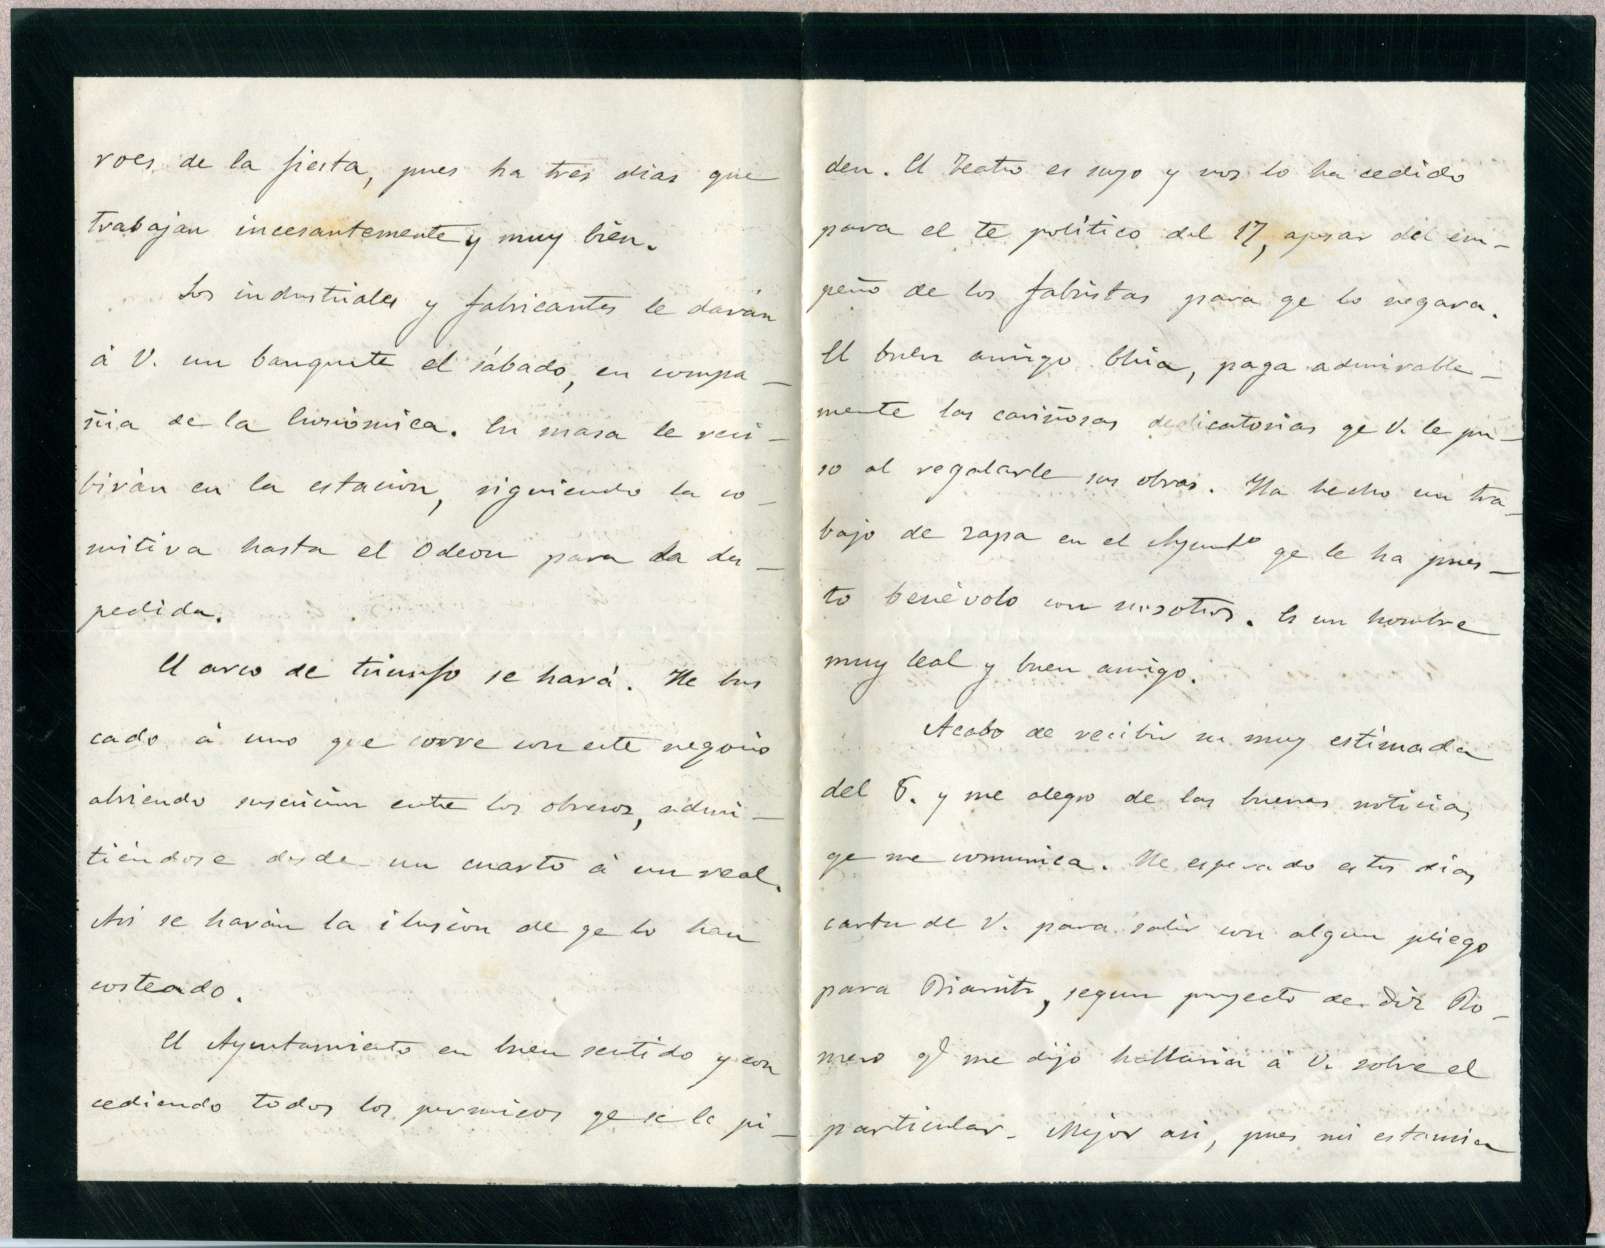 roes de la fiesta, pues ha tres dias que
trabajan incesantemente y muy bien.
Los industriales y fabricantes le darán
á V. un banquete el sábado, en compa-
ñia de la Económica. En masa le reci-
birán en la estacion, siguiendo la co-
mitiva hasta el Odeon para la des-
pedida.
El arco de triunfo se hará. He bus
cado á uno que corre con este negocio
abriendo suscricion entre los obreros, admi-
tiéndose desde un cuarto á un real.
Asi se harán la ilusion de qe lo han
costeado.
El Ayuntamiento en buen sentido y con
cediendo todos los permisos qe se le pi-
den. El Teatro es suyo y nos lo ha cedido
para el te político del 17, apesar del em-
peño de los fabristas para qe lo negara.
El buen amigo, paga admirable-
mente las cariñosas dedicatorias qe V. le pu-
so al regalarle sus obras. Ha hecho un tra-
bajo de zapa en el Ayunto qe le ha pues-
to benévolo con nosotros. Es un hombre
muy leal y buen amigo.
Acabo de recibir su muy estimada
del 8. y me alegro de las buenas noticias
qe me comunica. He esperado estos dias
carta de V. para salir con algun pliego
para Biarritz, segun proyecto de Diz Ro-
mero qe me dijo hablaria á V. sobre el
particular. Mejor asi, pues mi estancia